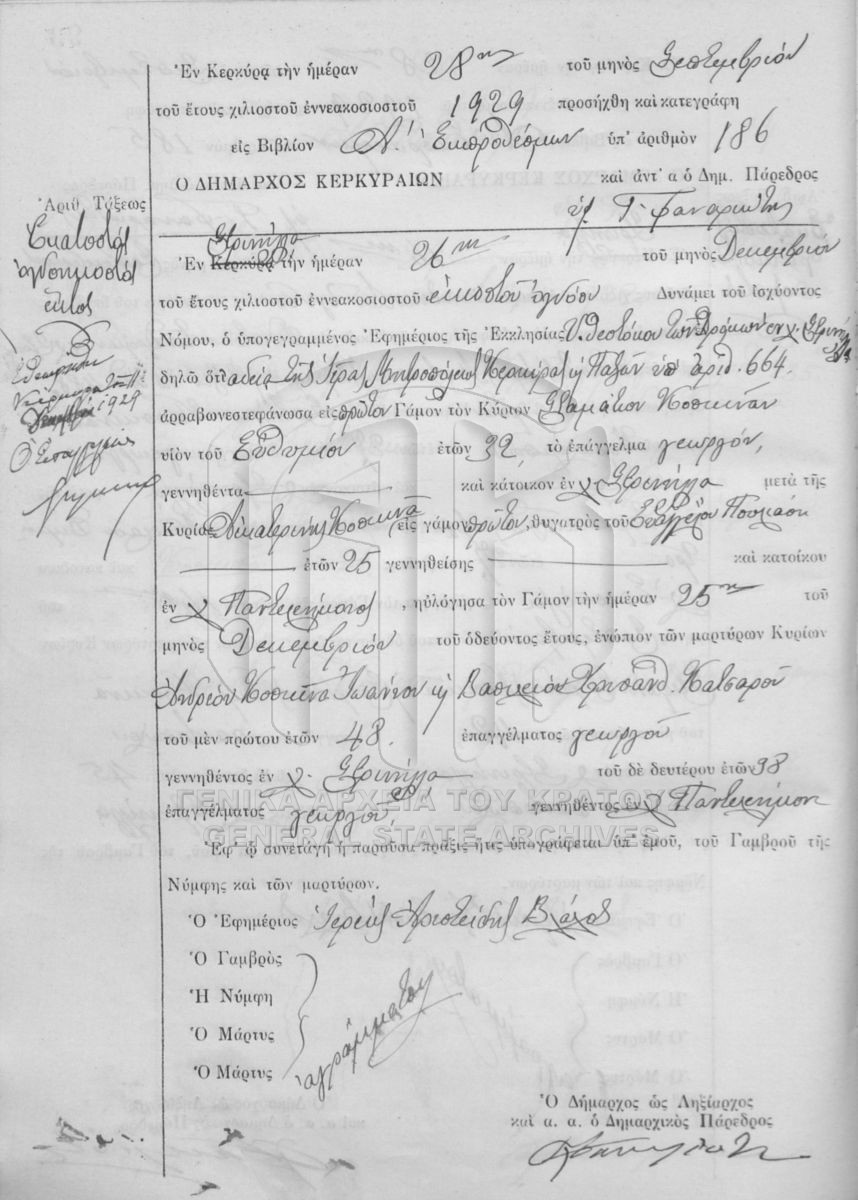 Ἐν Κερκύρᾳ τὴν ἡμέραν 28ην τοῦ μηνὸς Σεπτεμβρίου
τοῦ ἔτους χιλιοστοῦ ἐννεακοσιοστοῦ 1929 προσήχθη καὶ κατεγράφη
εἰς Βιβλίον Α΄. Ἐκπροθέσμων ὑπ' ἀριθμὸν 186
Ο ΔΗΜΑΡΧΟΣ ΚΕΡΚΥΡΑΙΩΝ καὶ ἀντ' α ὁ Δημ. Πάρεδρος
Ἀριθ. Τάξεως
Ἑκατοστὸς
ὀγδοηκοστὸς
ἕκτος
Ἐθεωρήθη
1929
Ὁ Εἰσαγγελεὺς
Σπινήλα
Ἐν Κερκύρᾳ τὴν ἡμέραν 26ην τοῦ μηνὸς Δεκεμβρίου
τοῦ ἔτους χιλιοστοῦ ἐννεακοσιοστοῦ εἰκοστοῦ ὀγδόου Δυνάμει τοῦ ἰσχύοντος
Νόμου, ὁ ὑπογεγραμμένος Ἐφημέριος τῆς Ἐκκλησίας Υ. Θεοτόκου τῶν
δηλῶ ὅτι ἀδείᾳ τῆς Ἱερᾶς Μητροπόλεως Κερκύρας ϗ Παξῶν ὑπ' ἀριθ. 664.
ἀρραβωνεστεφάνωσα εἰς πρῶτον Γάμον τὸν Κύριον Σταμάτιον Κοσκινᾶν
υἱὸν τοῦ Εὐθυμίου ἐτῶν 32, τὸ ἐπάγγελμα γεωργόν,
γεννηθέντα καὶ κάτοικον ἐν χ. Σπινήλα μετὰ τῆς
Κυρίας Αἰκατερίνης Κοσκινᾶ εἰς γάμον πρῶτον, θυγατρὸς τοῦ Εὐαγγέλου
ἐτῶν 25 γεννηθείσης καὶ κατοίκου
ἐν χ. Παντελεήμονος, ηὐλόγησα τὸν Γάμον τὴν ἡμέραν 25ην τοῦ
μηνὸς Δεκεμβρίου τοῦ ὁδεύοντος ἔτους, ἐνώπιον τῶν μαρτύρων Κυρίων
Ἀνδρέου Κοσκινᾶ Ἰωάννου ϗ Βασιλείου Κατσαροῦ
τοῦ μὲν πρώτου ἐτῶν 48. ἐπαγγέλματος γεωργοῦ
γεννηθέντος ἐν χ. Σπινήλα τοῦ δὲ δευτέρου ἐτῶν 38
ἐπαγγέλματος γεωργοῦ, γεννηθέντος ἐν χ. Παντελεήμονι
ΓΕΝΙΚΑ ΑΡΧΕΙΑ ΤΟΥ ΚΡΑΤΟΥΣ
GENERAL STATE ARCHIVES
Ἐφ' ᾧ συνετάγη ἡ παροῦσα πρᾶξις ἥτις ὑπογράφεται ὑπ' ἐμοῦ, τοῦ Γαμβροῦ τῆς
Νύμφης καὶ τῶν μαρτύρων.
Ὁ Ἐφημέριος Ἱερεὺς Ἀριστείδης Βλάχος
Ὁ Γαμβρὸς
Ἡ Νύμφη
Ὁ Μάρτυς
Ὁ Μάρτυς
ἀγράμματοι
Ὁ Δήμαρχος ὡς Ληξίαρχος
καὶ α. α. ὁ Δημαρχικὸς Πάρεδρος